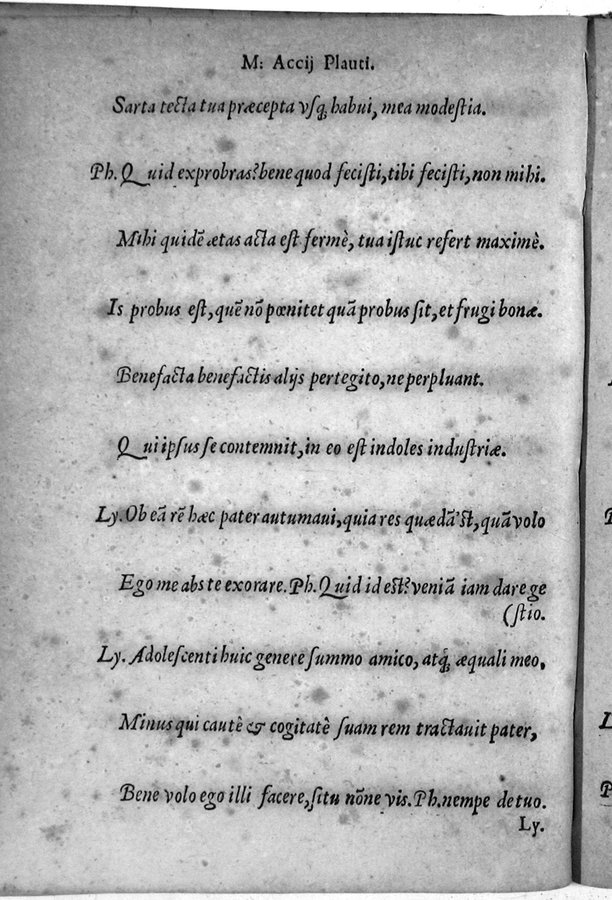 M: Accij Plauti.
Sarta tecta tua præcepta vsq; habui, mea modestia.
Ph. Quid exprobras? bene quod fecisti, tibi fecisti, non mihi.
Mihi quidē ætas acta est fermè, tua istuc refert maximè.
Is probus est, quē nō pœnitet quā probus sit, et frugi bonæ.
Benefacta benefactis alijs pertegito, ne perpluant.
Qui ipsus se contemnit, in eo est indoles industriæ.
Ly. Ob eā rē hæc pater autumaui, quia res quædā'st, quā volo
Ego me abs te exorare. Ph. Quid id est? veniā iam dare ge
(stio.
Ly. Adolescenti huic genere summo amico, atq; æquali meo,
Minus qui cautè & cogitatè suam rem tractauit pater,
Bene volo ego illi facere, si tu nōne vis. Ph. nempe de tuo.
Ly.